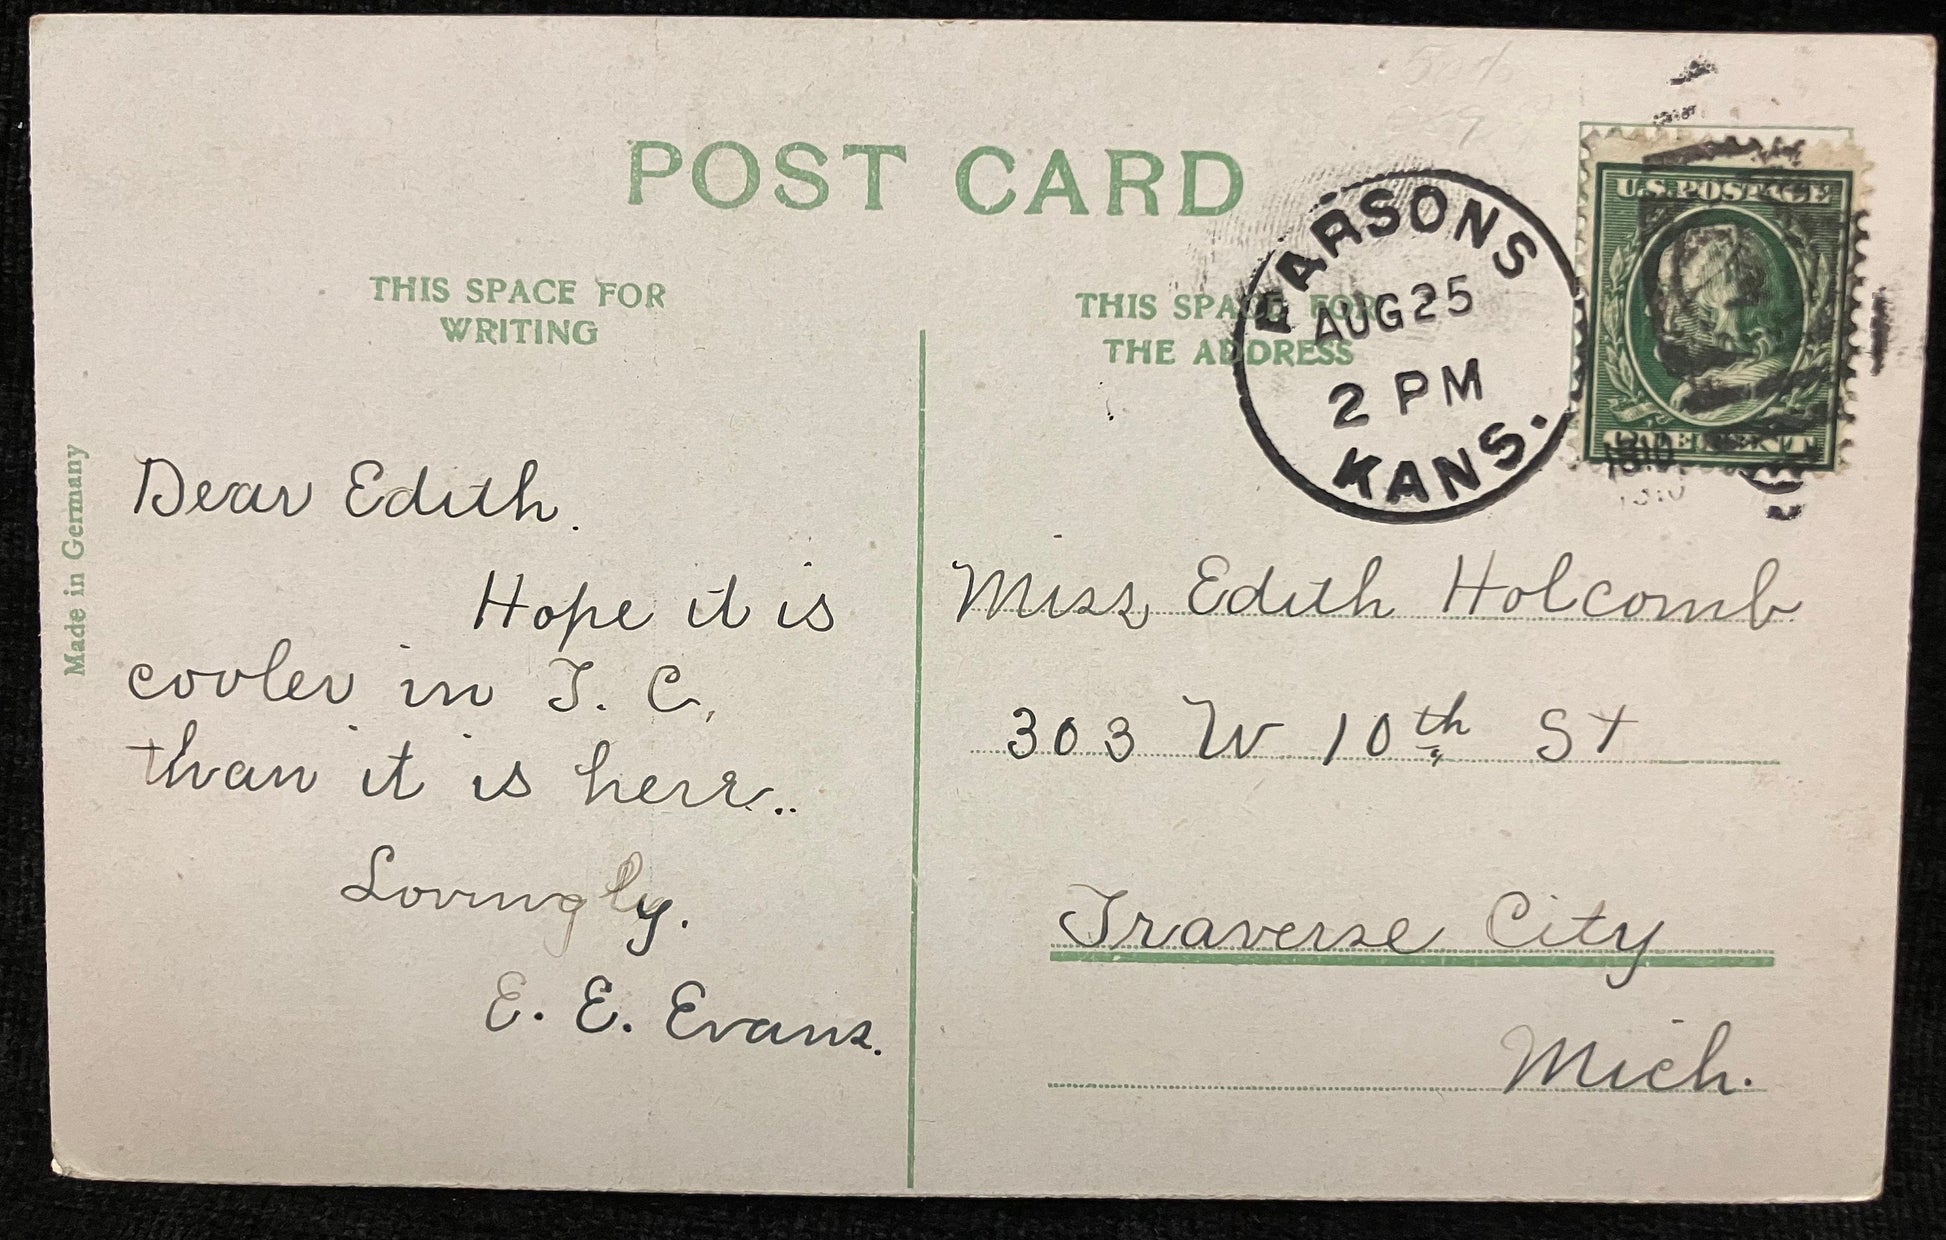 POST CARD
THIS SPACE FOR
WRITING
THIS SPACE FOR
THE ADDRESS
PARSONS
AUG 25
2 PM
KANS.
1910
U.S. POSTAGE
ONE CENT
Made in Germany
Dear Edith.
Hope it is
cooler in T. C.
than it is here..
Lovingly.
E. E. Evans.
Miss Edith Holcomb
303 W 10th St
Traverse City
Mich.